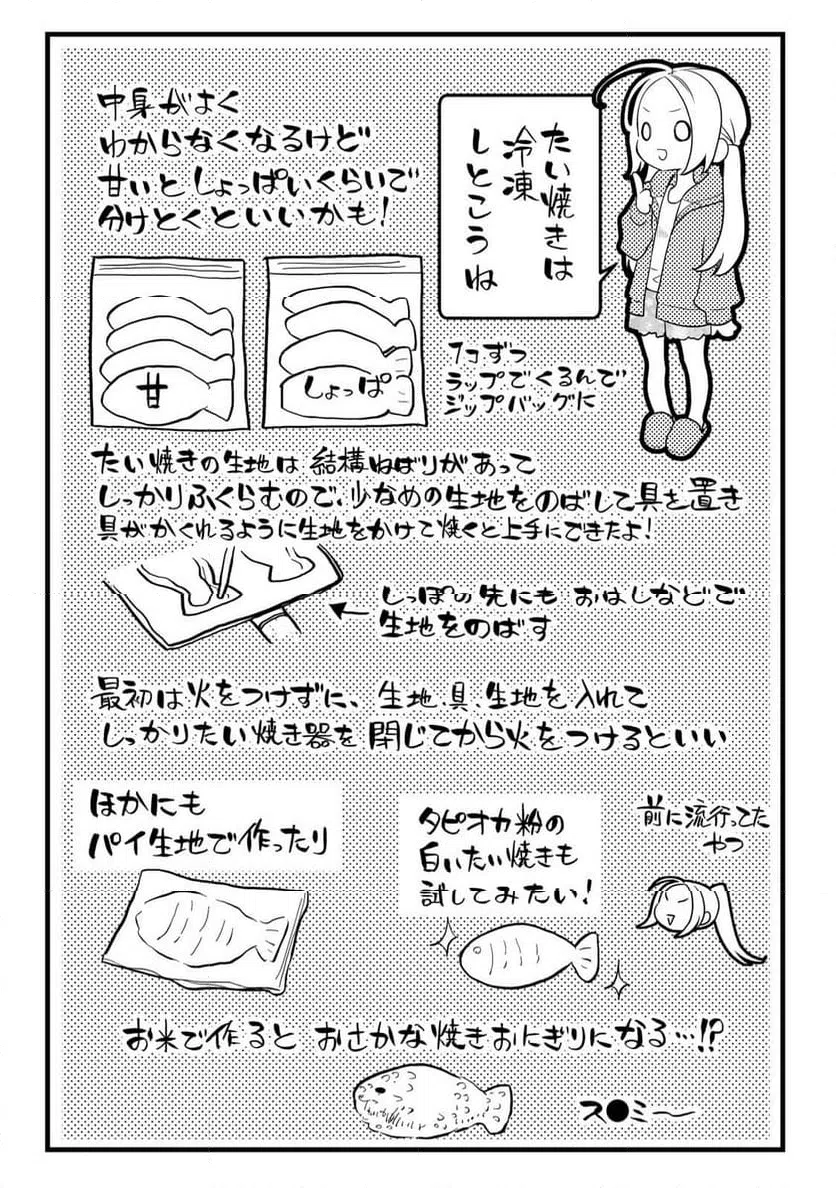 たい焼きは
冷凍
しとこうね
中身がよく
わからなくなるけど
甘いとしょっぱいくらいで
分けとくといいかも!
甘
しょっぱ
1コずつ
ラップでくるんで
ジップバッグに
たい焼きの生地は 結構ねばりがあって
しっかりふくらむので、少なめの生地をのばして具を置き
具がかくれるように生地をかけて焼くと上手にできたよ!
しっぽの先にも おはしなどで
生地をのばす
最初は火をつけずに、生地、具、生地を入れて
しっかりたい焼き器を閉じてから火をつけるといい
ほかにも
パイ生地で作ったり
タピオカ粉の
白いたい焼きも
試してみたい!
前に流行ってた
やつ
お米で作ると おさかな焼きおにぎりになる…!?
ス●ミー